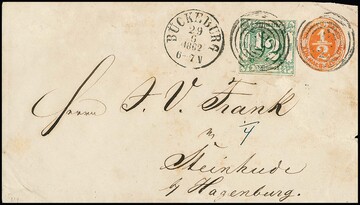 BÜCKEBURG
29
9
1862
6-7 N
1/2
1/2
Herrn J. V. Frank
in
Steinhude
b/ Hagenburg.